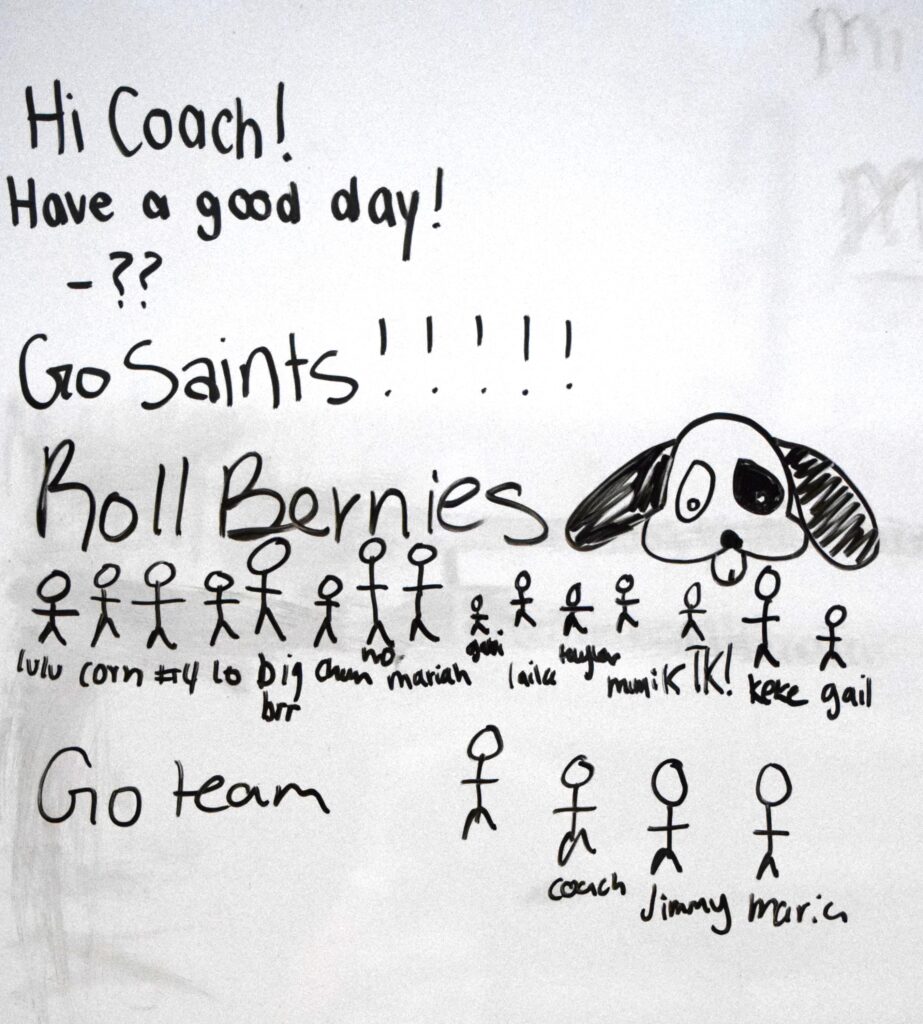 Hi Coach!
Have a good day!
- ??
Go Saints!!!!!
Roll Bernies
lulu corn #4 Lo big brr no mariah gabi laila taylor mumi K TK! keke gail
Go team
coach Jimmy maria